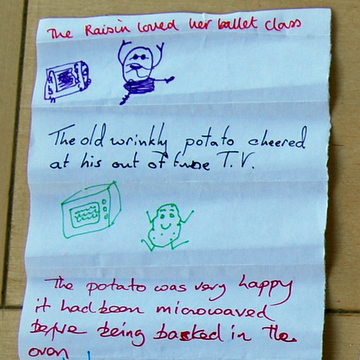 The Raisin loved her ballet class
The old wrinkly potato cheered
at his out of tune T.V.
The potato was very happy
it had been microwaved
before being baked in the
oven